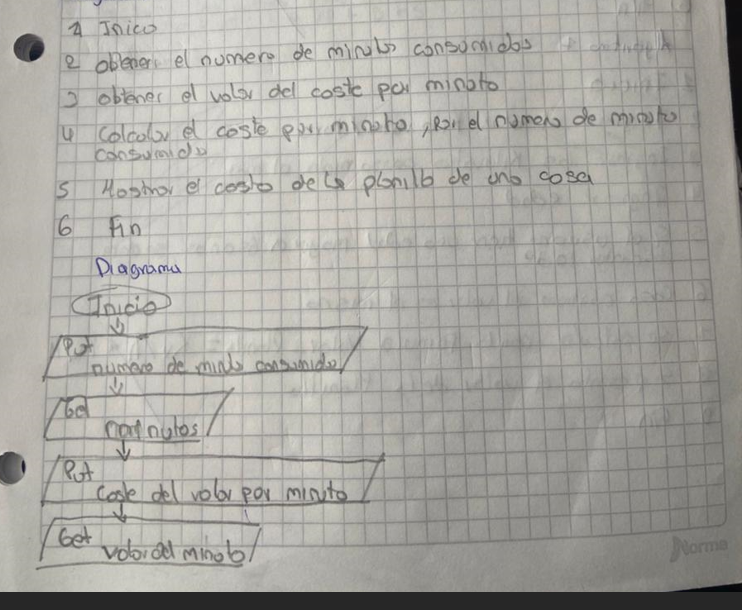 1 Inico
2 obtener el numero de minuto consumidos
3 obtener el valor del coste por minuto
4 Calcular el coste por minuto, por el numero de minuto
consumido
5 Mostrar el costo de la planilla de una cosa
6 Fin
Diagrama
Inicio
Put
numero de minuto consumido
Get
minutos
Put
Coste del valor por minuto
Get
valor del minuto
Norma